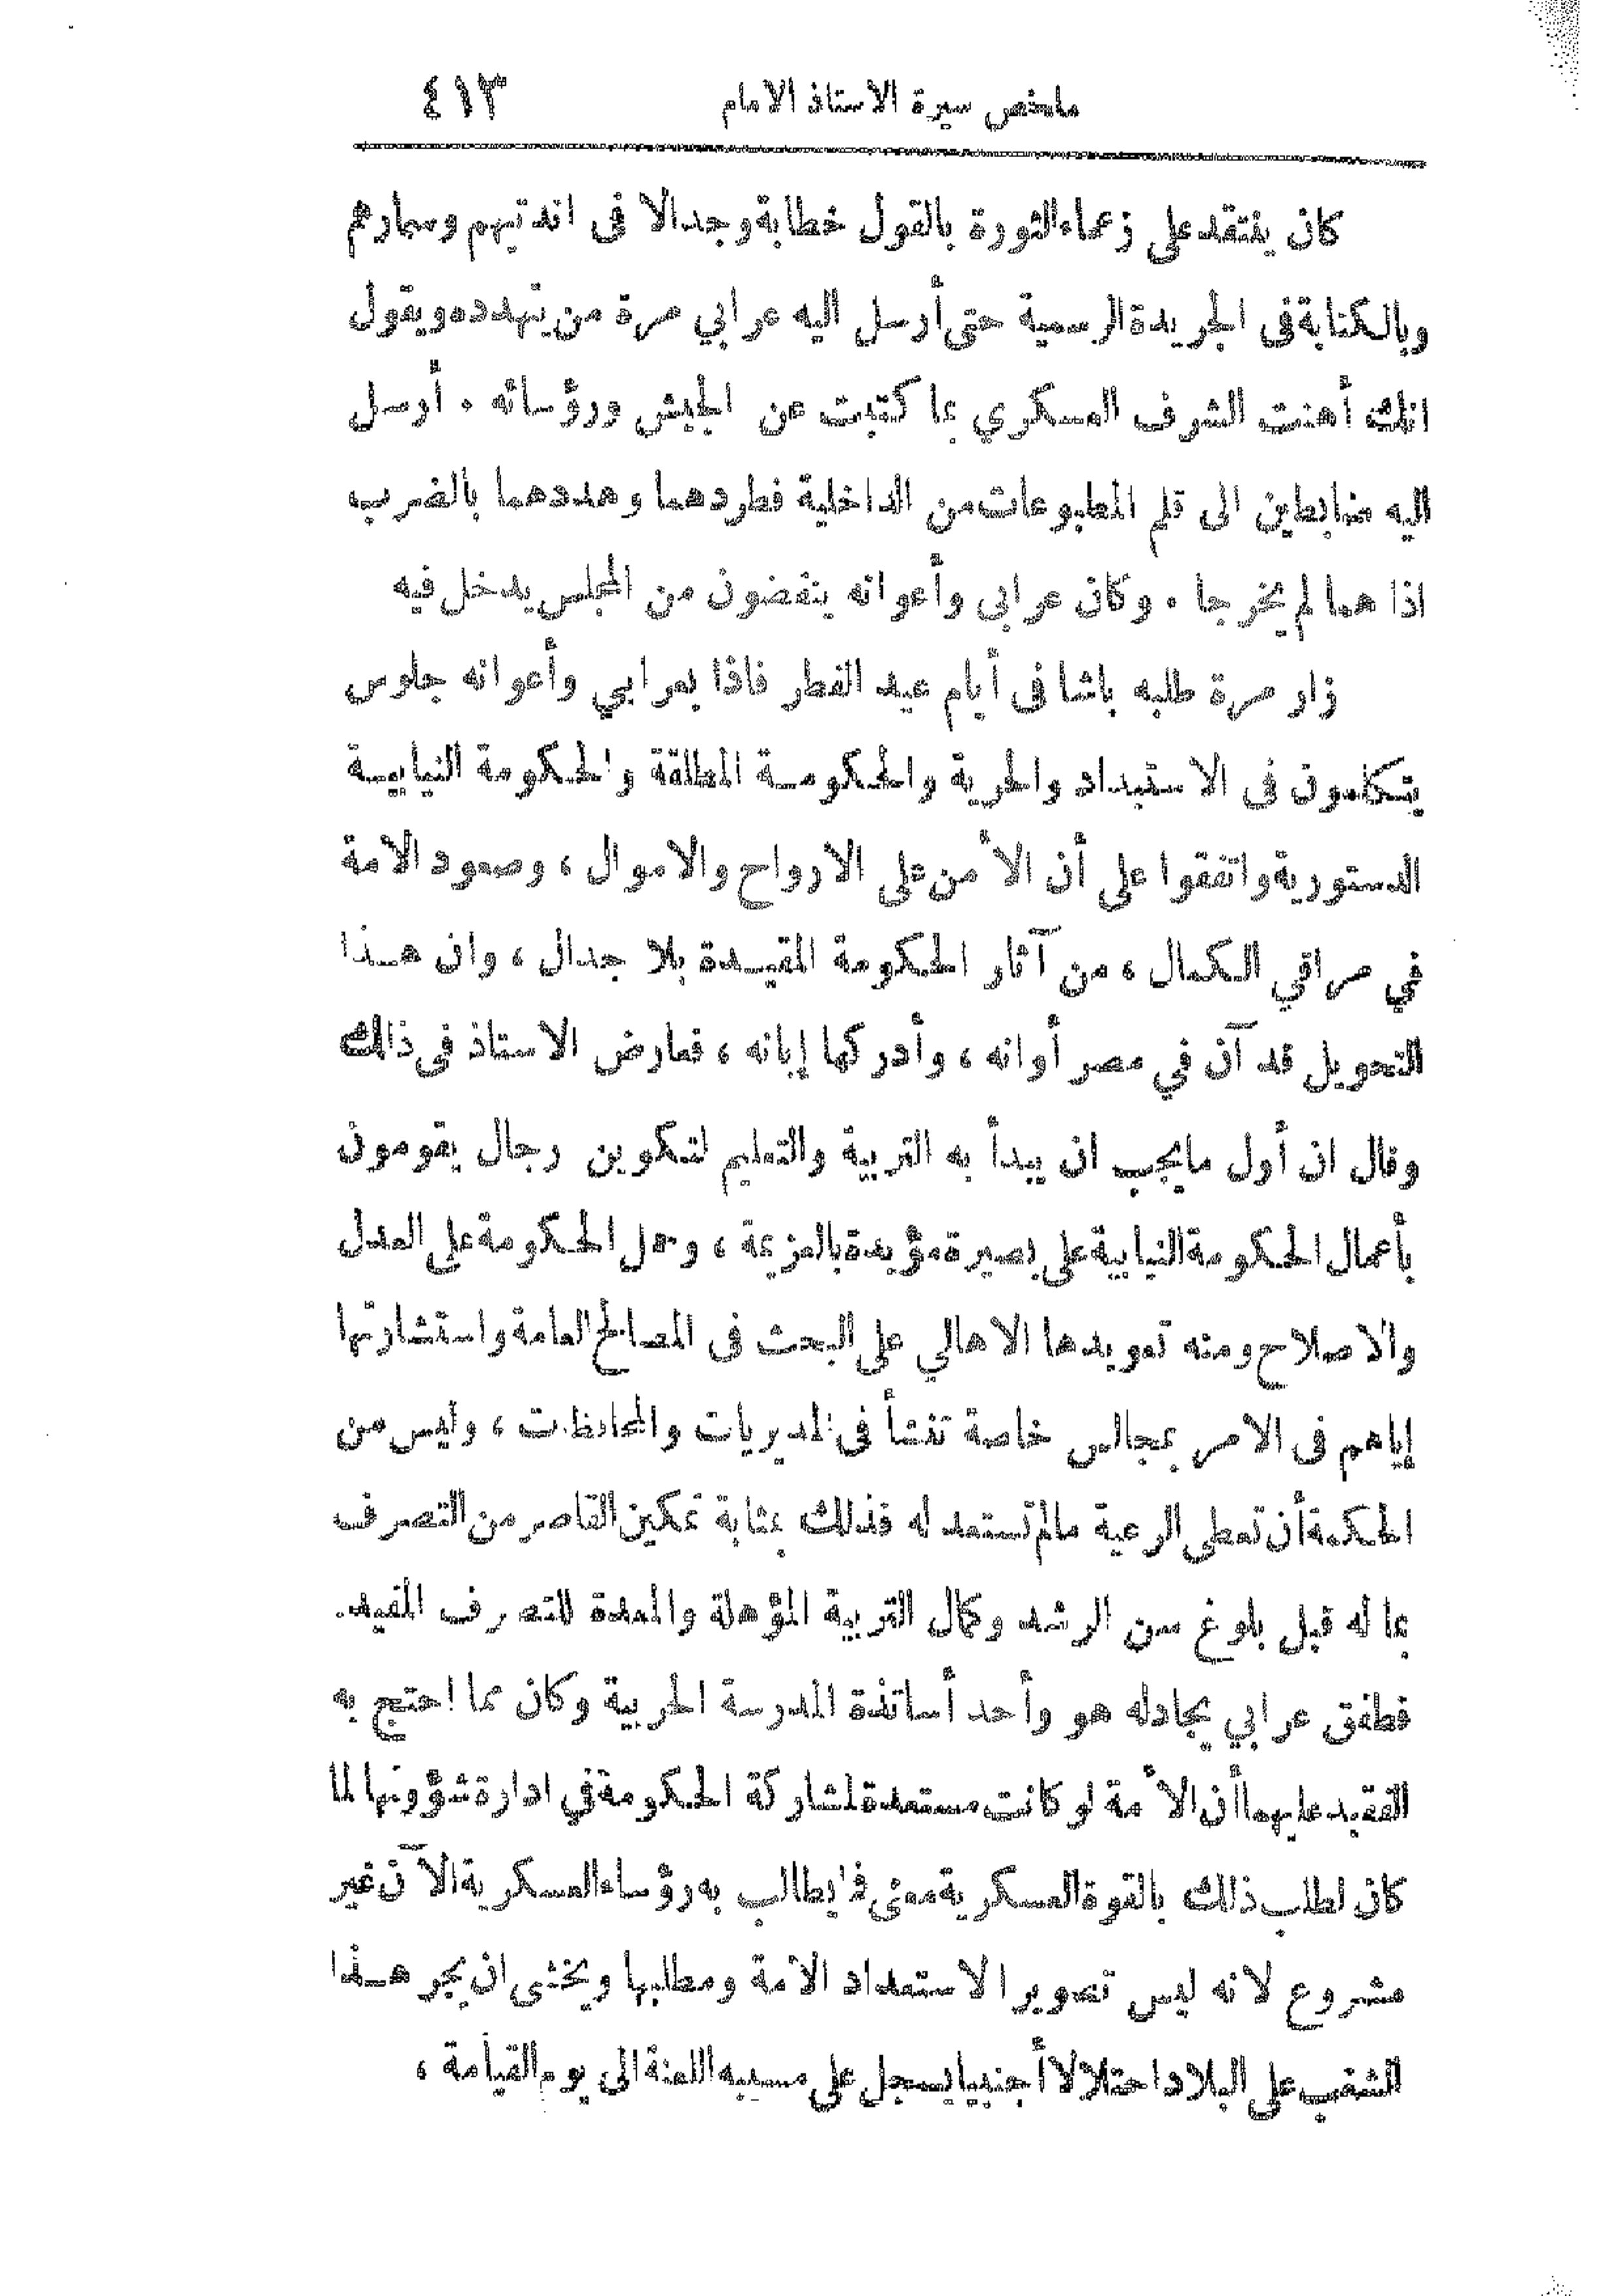 ملخص سيرة الاستاذ الامام ٤١٣
كان ينتقد على زعماء الثورة بالقول خطابة وجدالا فى انديتهم وسمارهم
وبالكتابة فى الجريدة الرسمية حتى أرسل اليه عرابي مرة من يتهدده ويقول
انك أهنت الشرف العسكري بما كتبت عن الجيش ورؤسائه . أرسل
اليه ضابطين الى قلم المطبوعات من الداخلية فطردهما وهددهما بالضرب
اذا هما لم يخرجا . وكان عرابى وأعوانه ينفضون من المجلس يدخل فيه
زار مرة طلبه باشا فى أيام عيد الفطر فاذا بعرابي وأعوانه جلوس
يتكلمون فى الاستبداد والحرية والحكومة المطلقة والحكومة النيابية
الدستورية واتفقوا على أن الأمن على الارواح والاموال ، وصعود الأمة
في مراقي الكمال ، من آثار الحكومة المقيدة بلا جدال ، وان هذا
التحويل قد آن في مصر أوانه ، وأدركها إبانه ، فعارض الاستاذ فى ذلك
وقال ان أول مايجب ان يبدأ به التربية والتعليم لتكوين رجال يقومون
بأعمال الحكومة النيابية على بصيرة مؤيدة بالعزيمة ، وحمل الحكومة على العدل
والاصلاح ومنه تعويدها الاهالي على البحث فى المصالح العامة واستشارتها
إياهم فى الامر بمجالس خاصة تنشأ فى المديريات والمحافظات ، وليس من
الحكمة أن تعطى الرعية مالم تستعد له فذلك بمثابة تمكين القاصر من التصرف
بما له قبل بلوغ سن الرشد وكمال التربية المؤهلة والمعدة للتصرف المفيد.
فطفق عرابي يجادله هو وأحد أساتذة المدرسة الحربية وكان مما احتج به
الفقيد عليهما أن الأمة لو كانت مستعدة لمشاركة الحكومة في ادارة شؤونها لما
كان لطلب ذلك بالقوة العسكرية معنى فما يطالب به رؤساء العسكرية الآن غير
مشروع لانه ليس تصوير الاستعداد الأمة ومطلبها ويخشى ان يجر هذا
الشغب على البلاد احتلالا أجنبيا يسجل على مسببه اللعنة الى يوم القيامة ،